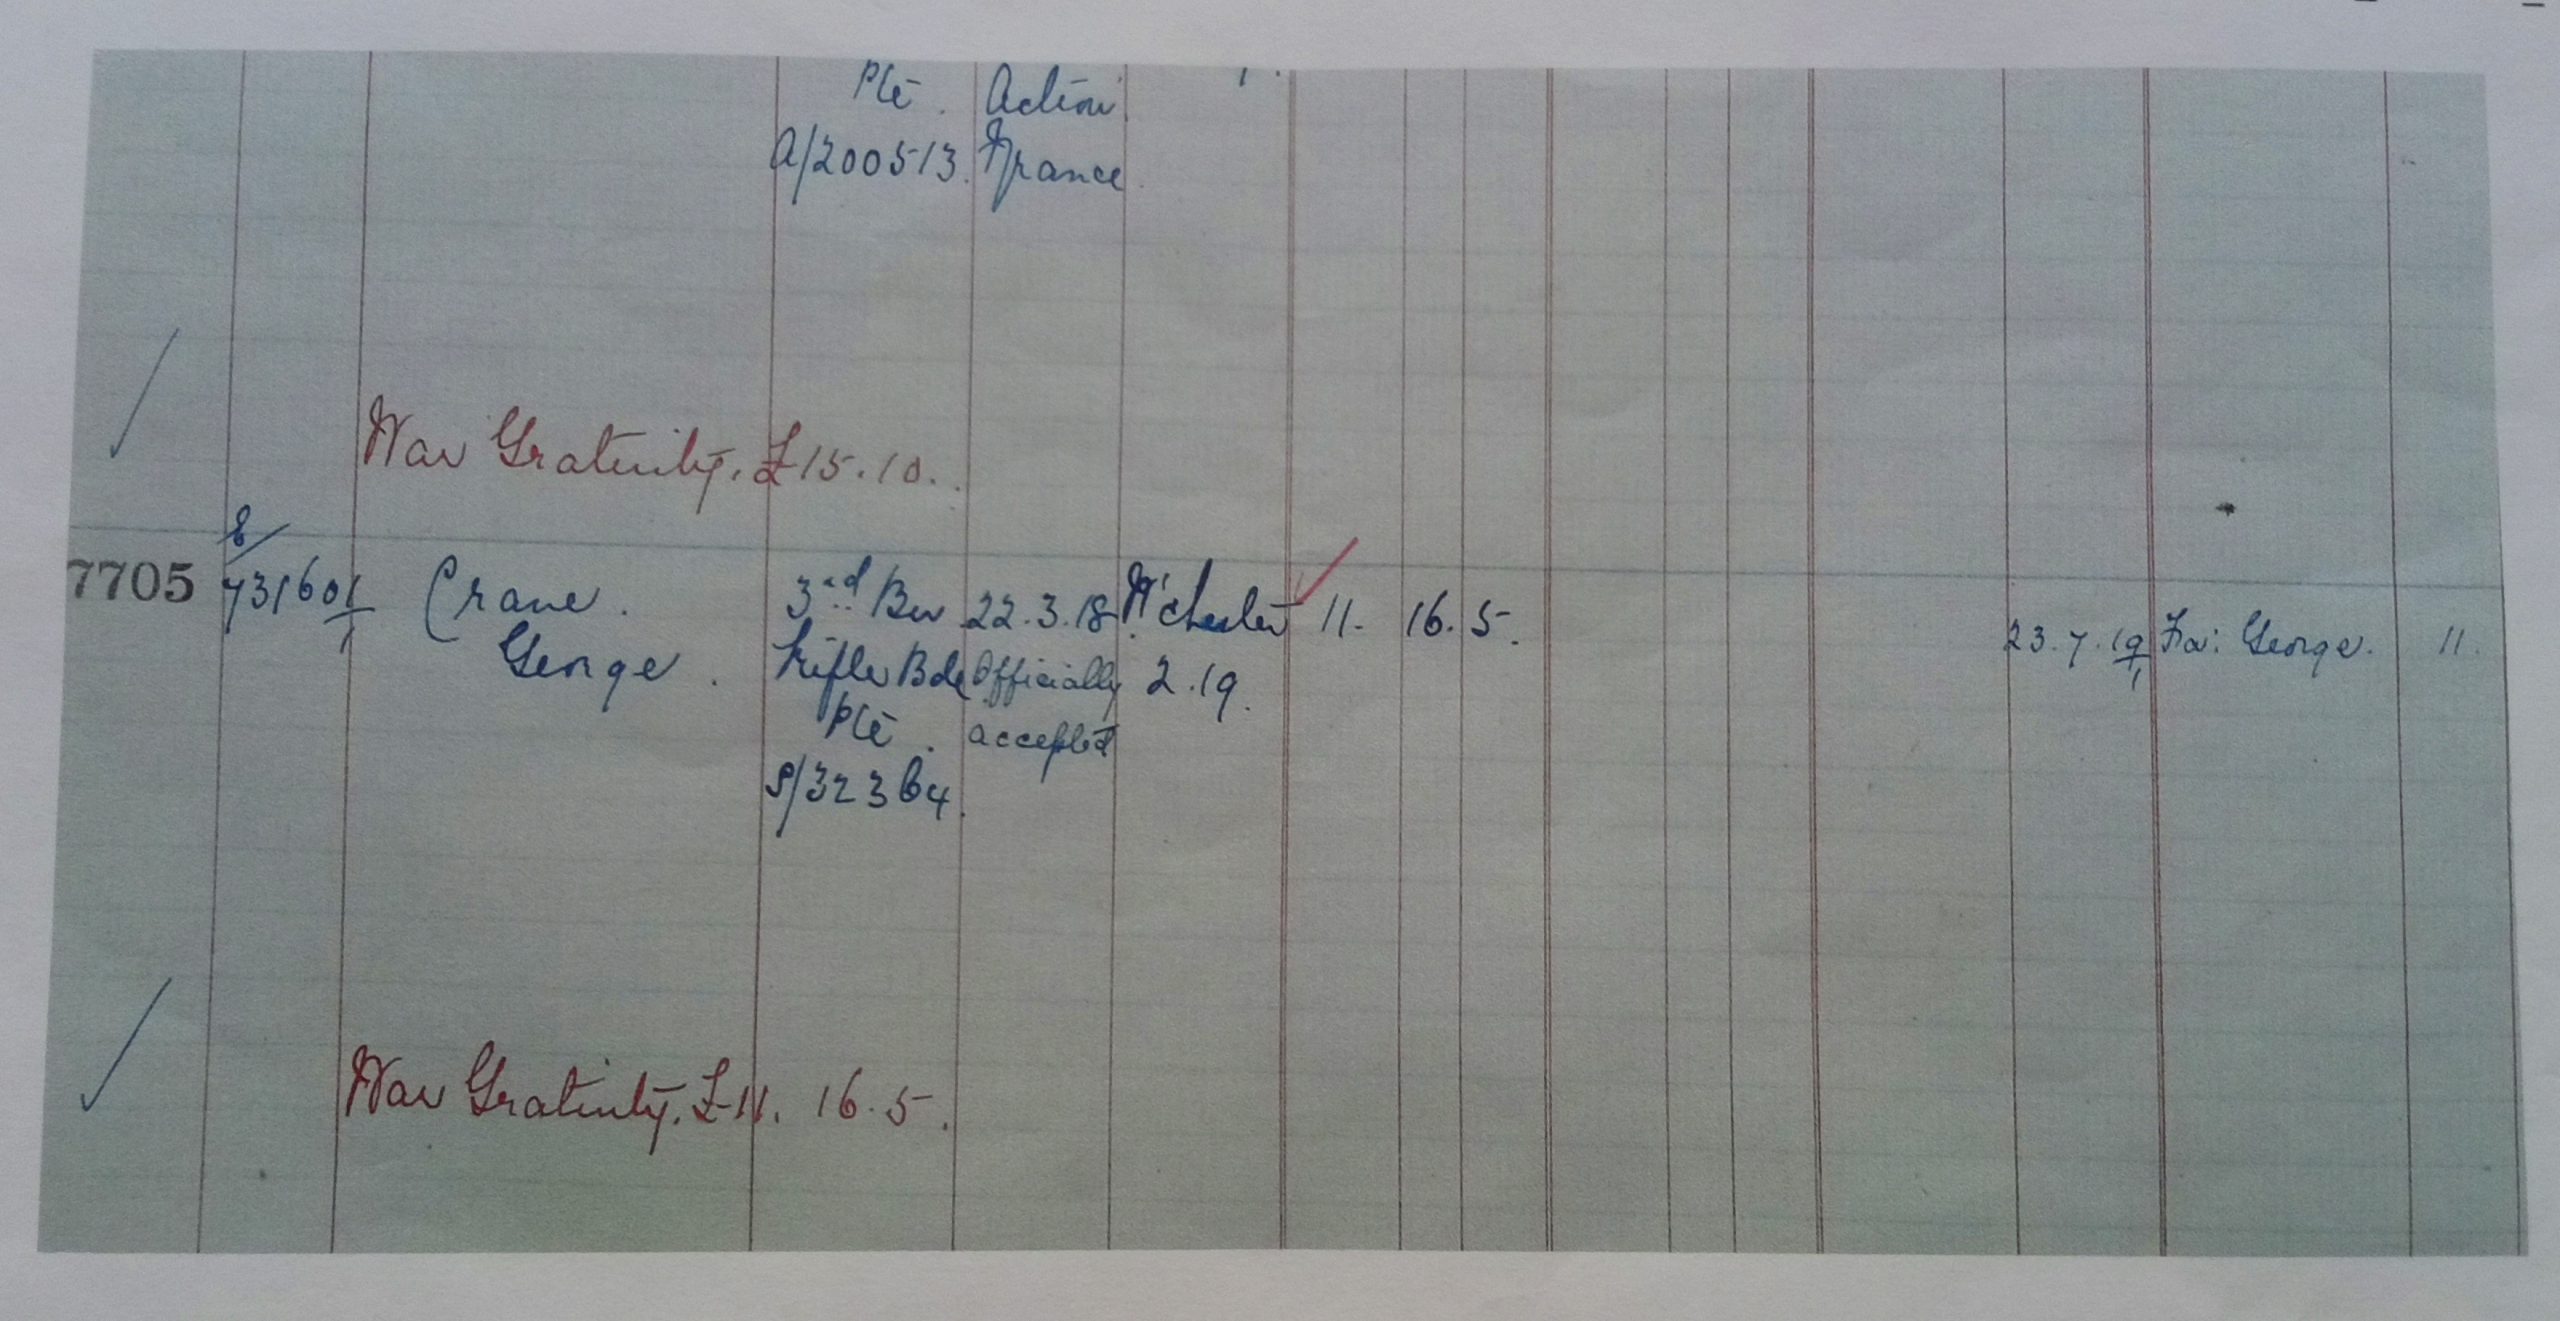 Pte. Action
A/200513. France.
War Gratuity. £15.10.
8/
7705 731601/1 Crane. 3rd Bn 22.3.18 W'chester 11. 16. 5. 23.7.19 Fa: George. 11.
George. Rifle Bde Officially 2.19.
Pte. accepted
S/32364.
War Gratuity. £11. 16. 5.